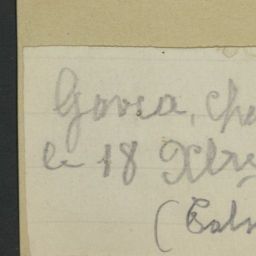 Gorea, che
le 18 Xbre
(Cal